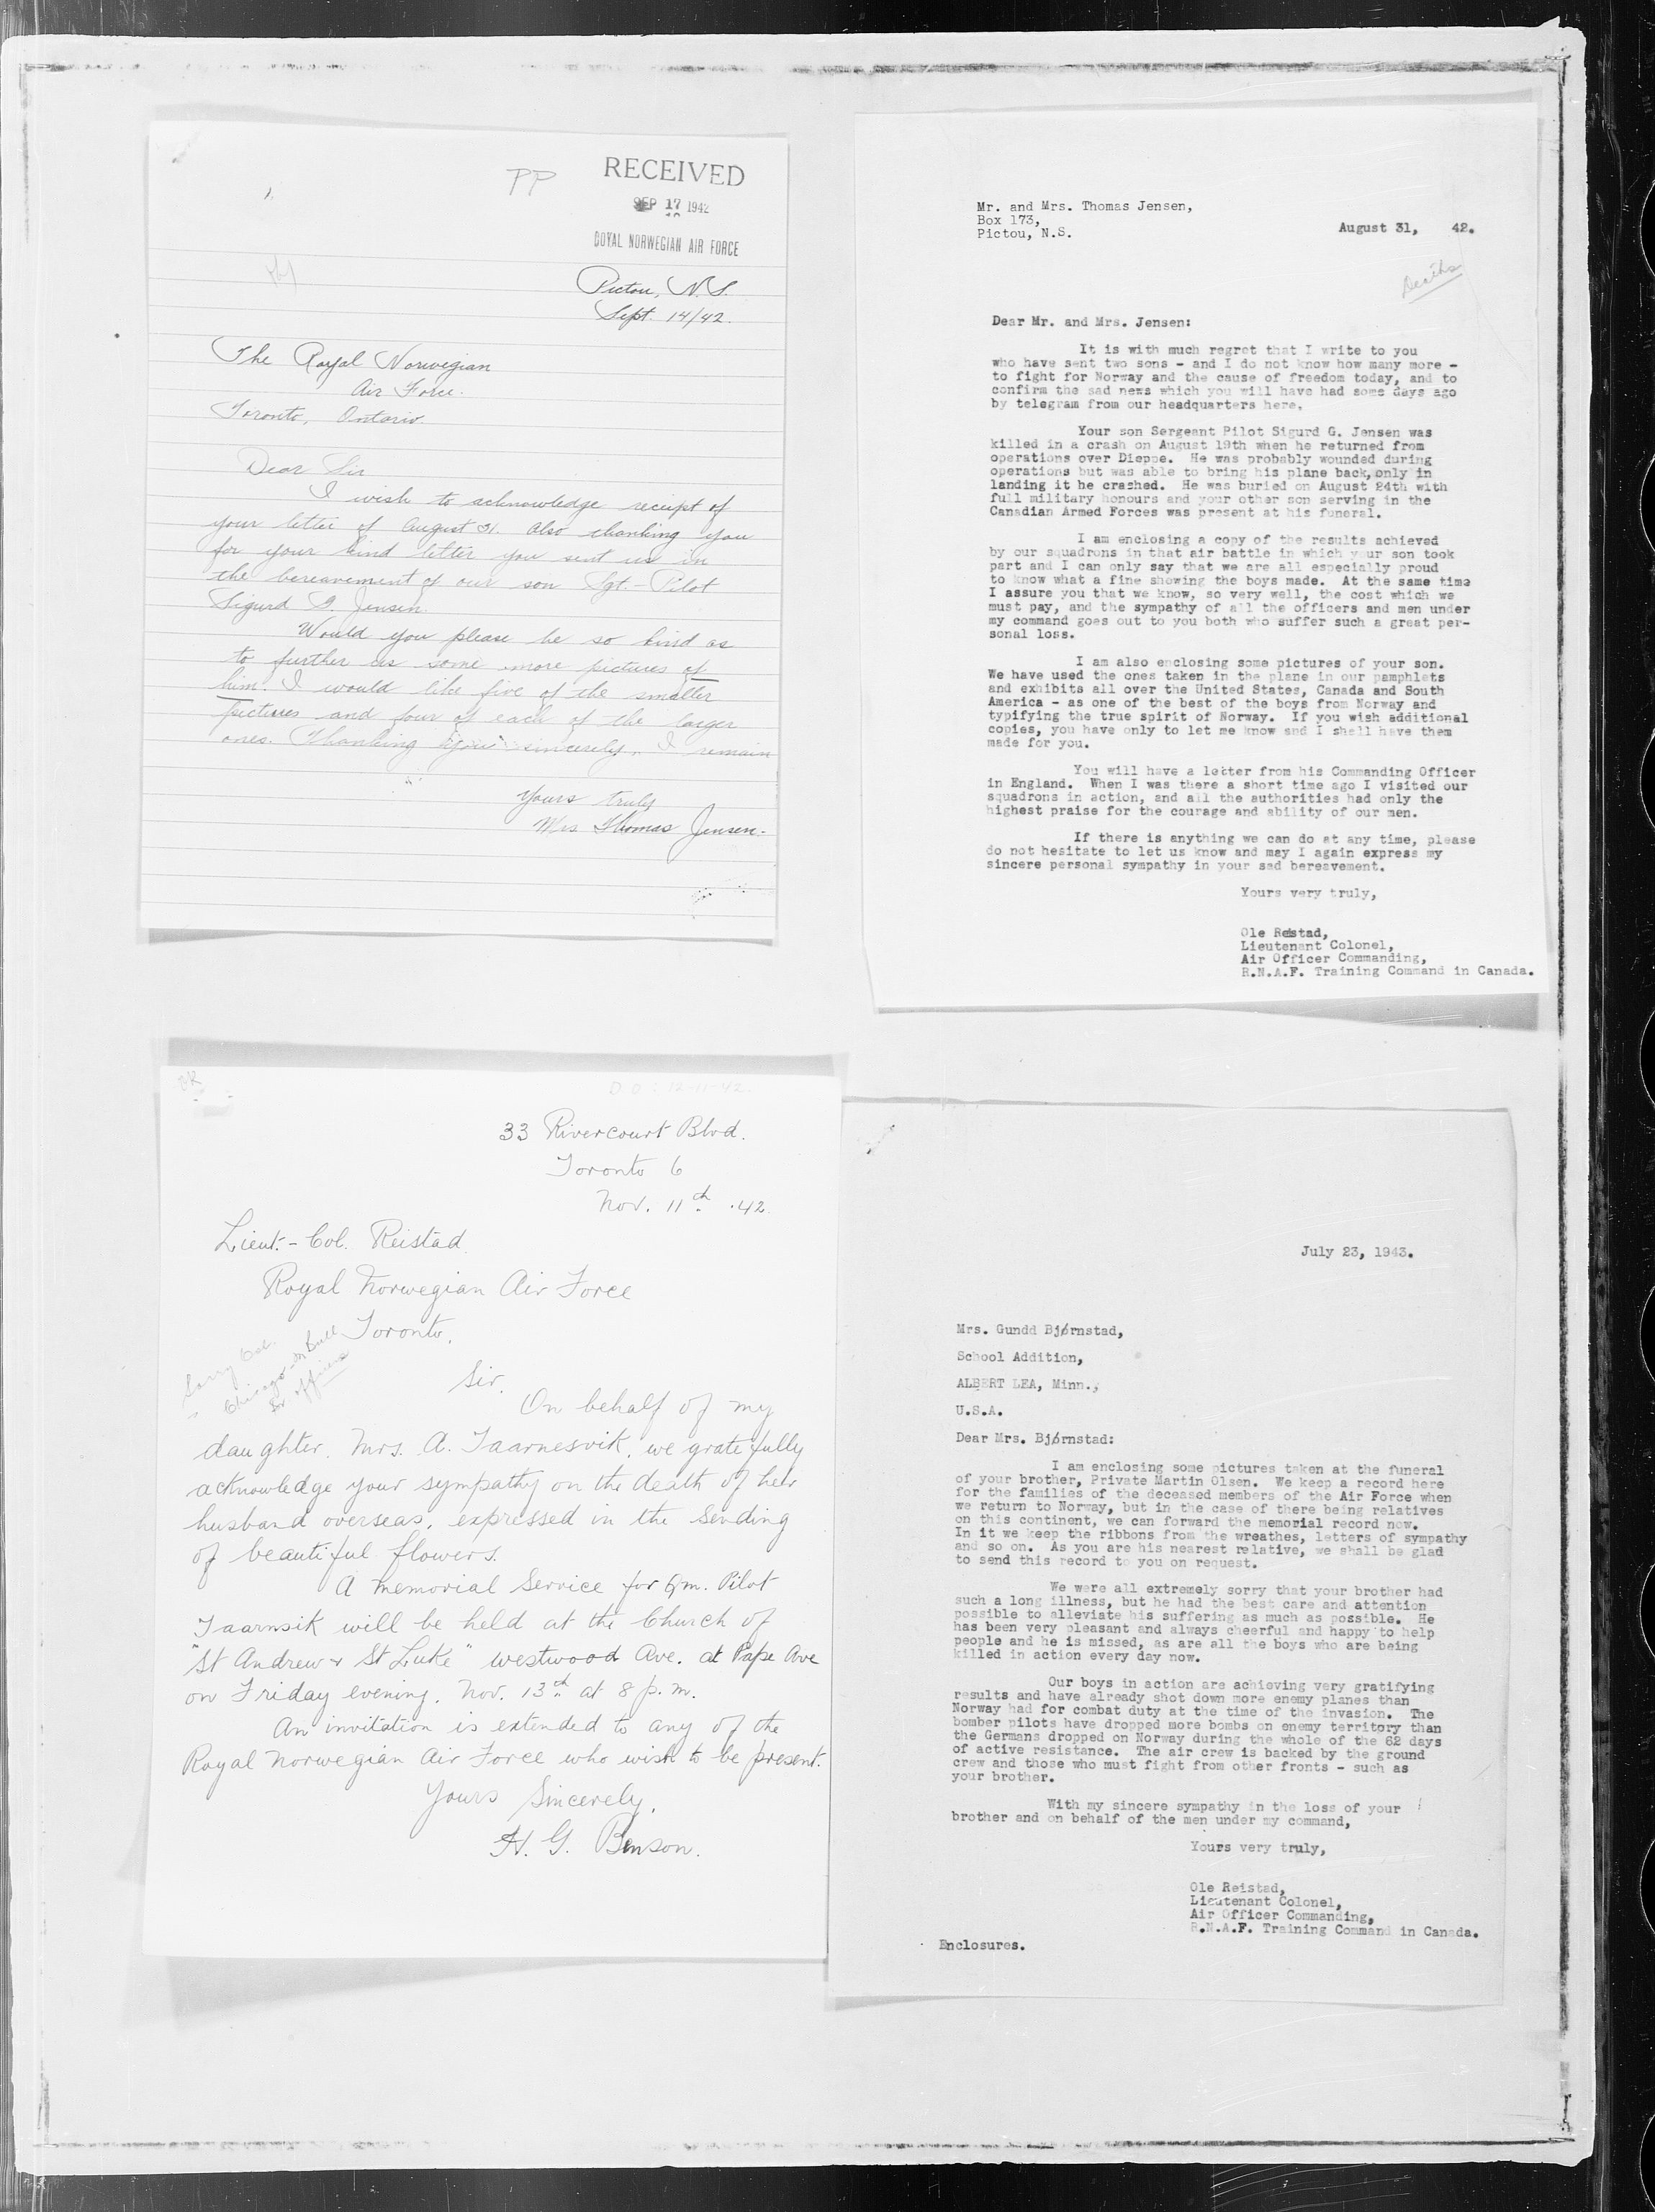 1.
PP
RECEIVED
SEP 17 1942
ROYAL NORWEGIAN AIR FORCE
Pictou, N.S.
Sept. 14/42.
The Royal Norwegian
Air Force.
Toronto, Ontario.
Dear Sir
I wish to acknowledge receipt of
your letter of August 31. Also thanking you
for your kind letter you sent us in
the bereavement of our son Sgt.-Pilot
Sigurd G. Jensen.
Would you please be so kind as
to further us some more pictures of
him. I would like five of the smaller
pictures and four of each of the larger
ones. Thanking you sincerely, I remain
Yours truly
Mrs Thomas Jensen.
Mr. and Mrs. Thomas Jensen,
Box 173,
Pictou, N.S.
August 31, 42.
Deaths
Dear Mr. and Mrs. Jensen:
It is with much regret that I write to you
who have sent two sons - and I do not know how many more -
to fight for Norway and the cause of freedom today, and to
confirm the sad news which you will have had some days ago
by telegram from our headquarters here.
Your son Sergeant Pilot Sigurd G. Jensen was
killed in a crash on August 19th when he returned from
operations over Dieppe. He was probably wounded during
operations but was able to bring his plane back, only in
landing it he crashed. He was buried on August 24th with
full military honours and your other son serving in the
Canadian Armed Forces was present at his funeral.
I am enclosing a copy of the results achieved
by our squadrons in that air battle in which your son took
part and I can only say that we are all especially proud
to know what a fine showing the boys made. At the same time
I assure you that we know, so very well, the cost which we
must pay, and the sympathy of all the officers and men under
my command goes out to you both who suffer such a great per-
sonal loss.
I am also enclosing some pictures of your son.
We have used the ones taken in the plane in our pamphlets
and exhibits all over the United States, Canada and South
America - as one of the best of the boys from Norway and
typifying the true spirit of Norway. If you wish additional
copies, you have only to let me know and I shall have them
made for you.
You will have a letter from his Commanding Officer
in England. When I was there a short time ago I visited our
squadrons in action, and all the authorities had only the
highest praise for the courage and ability of our men.
If there is anything we can do at any time, please
do not hesitate to let us know and may I again express my
sincere personal sympathy in your sad bereavement.
Yours very truly,
Ole Reistad,
Lieutenant Colonel,
Air Officer Commanding,
R.N.A.F. Training Command in Canada.
D O : 12-11-42.
33 Rivercourt Blvd.
Toronto 6
Nov. 11th .42.
Lieut.-Col. Reistad.
Royal Norwegian Air Force
Toronto.
Sir.
On behalf of my
daughter. Mrs. A. Taarnesvik, we gratefully
acknowledge your sympathy on the death of her
husband overseas, expressed in the sending
of beautiful flowers.
A memorial Service for Qm. Pilot
Taarnsik will be held at the Church of
"St Andrew + St Luke" westwood Ave. at Pape Ave
on Friday evening. Nov. 13th at 8 p.m.
An invitation is extended to any of the
Royal Norwegian Air Force who wish to be present.
Yours Sincerely,
H. G. Benson.
July 23, 1943.
Mrs. Gundd Bjørnstad,
School Addition,
ALBERT LEA, Minn.,
U.S.A.
Dear Mrs. Bjørnstad:
I am enclosing some pictures taken at the funeral
of your brother, Private Martin Olsen. We keep a record here
for the families of the deceased members of the Air Force when
we return to Norway, but in the case of there being relatives
on this continent, we can forward the memorial record now.
In it we keep the ribbons from the wreathes, letters of sympathy
and so on. As you are his nearest relative, we shall be glad
to send this record to you on request.
We were all extremely sorry that your brother had
such a long illness, but he had the best care and attention
possible to alleviate his suffering as much as possible. He
has been very pleasant and always cheerful and happy to help
people and he is missed, as are all the boys who are being
killed in action every day now.
Our boys in action are achieving very gratifying
results and have already shot down more enemy planes than
Norway had for combat duty at the time of the invasion. The
bomber pilots have dropped more bombs on enemy territory than
the Germans dropped on Norway during the whole of the 62 days
of active resistance. The air crew is backed by the ground
crew and those who must fight from other fronts - such as
your brother.
With my sincere sympathy in the loss of your
brother and on behalf of the men under my command,
Yours very truly,
Ole Reistad,
Lieutenant Colonel,
Air Officer Commanding,
R.N.A.F. Training Command in Canada.
Enclosures.